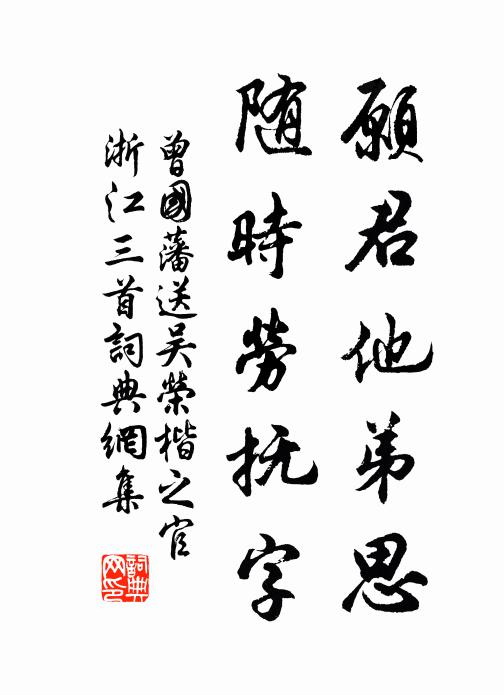 願君他弟思
随時勞抚字
曾國藩送吴榮楷之官
浙江三首詞典網集
詞典
网